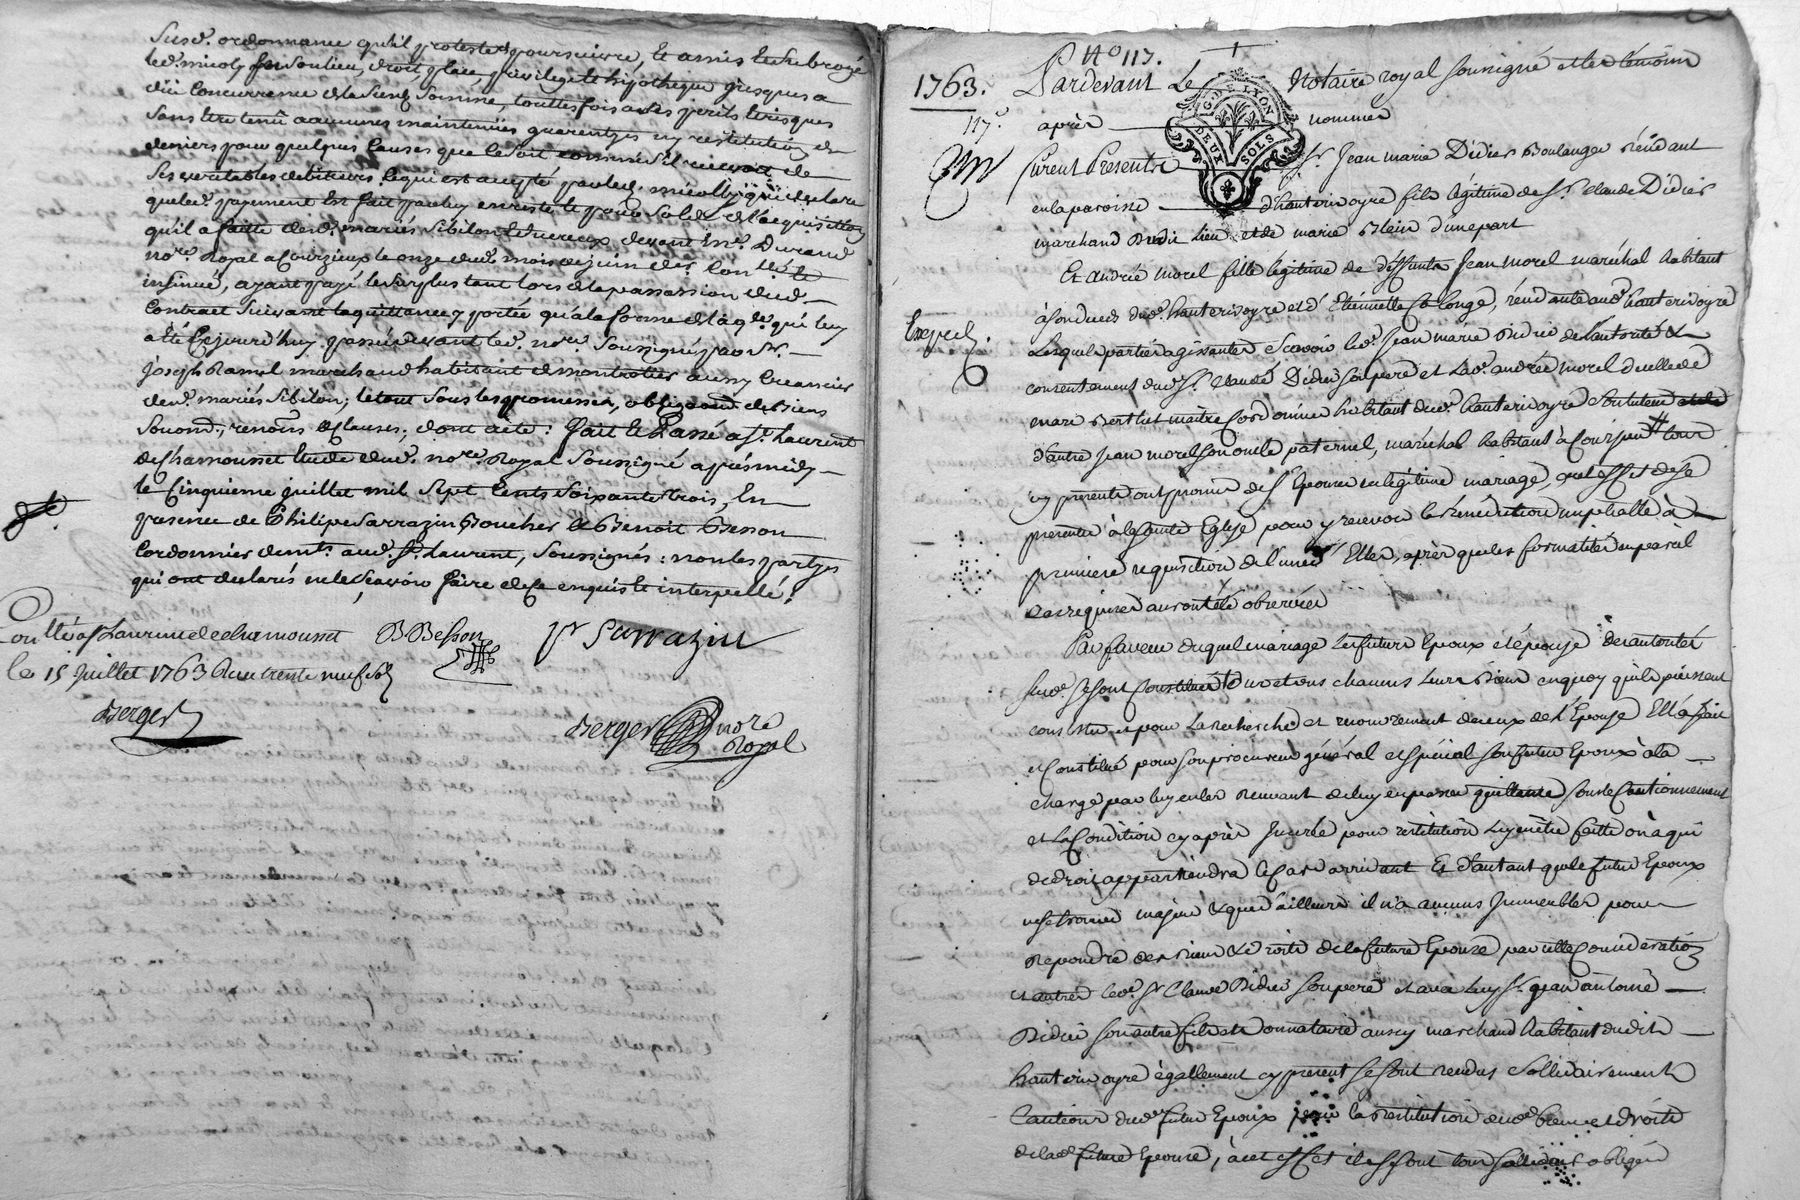 Susd. ordonnance qu'il proteste poursuivre, le a mis et subrogé
led. micoly en son lieu, droit, place, privilege et hipotheque jusques a
düe concurrence de la susd. somme, touttes fois a ses perils et risques
sans etre tenu a aucunes maintenües garenties ny restitution de
deniers pour quelques causes que ce soit comme
ses veritables debiteurs. ce qui est accepté par led. micolly qui declare
que led. payement est fait par luy en reste et pour solde de l'acquisition
qu'il a faitte desd. mariés Sibilon et devant Me. Durand
nore. Royal a Courzieux le onze dud. mois de juin der. Conllé et
insinué, ayant payé le surplus tant lors de la passassion dud.
contract suivant la quittance y portée qu'a la forme de la qe. qui luy
a été Cejourd'huy passée devant led. nore. soussigné par Sr.
joseph Ramel marchand habitant de montrotier aussy creancier
desd. mariés Sibilon; le tout sous les promesses, obligaons. de biens
soumd., renons. & clauses; dont acte: fait et Passé a St. Laurent
de Chamousset etude dud. nore. Royal soussigné après midy
le cinquieme juillet mil sept cents soixante trois, En
presence de Philipe Sarrazin Boucher et Benoit Besson
Cordonnier demts. aud. St. Laurent, soussignés: non les partyes
qui ont declarés ne le scavoir faire de ce enquis et interpellé;
Conllé a St Laurent de chamousset
le 15 juillet 1763 Recu trente neuf sols
Berger
B Besson
Pr Sarrazin
Berger nore Royal
No 117.
1763.
117e.
Exped.
Pardevant Le Notaire royal soussigné et les témoins
après nommés
G. DE LYON
DEUX SOLS
furent Presents Sr. Jean marie Didier Boulanger résidant
en la paroisse d'hauterivoyre fils légitime de Sr. Claude Didier
marchand dudit lieu et de marie Blein d'une part
Et andrée morel fille legitime de deffunts Jean morel maréchal habitant
dud. hauterivoyre et d'Etiennette Colonge, résidante aud. hauterivoyre
Lesquels parties agissantes Scavoir led. Jean marie Didier de l'autorité &
consentement dud. Sr. Claude Didier son pere et lad. andrée morel de celle de
marc Berthet maitre Cordonnier habitant dud. hauterivoyre son tuteur
d'autre Jean morel son oncle paternel, maréchal habitant à Courzieu tous
cy présents ont promis de s'Epouser en légitime mariage, a cet effet de se
presenter à la sainte Eglise pour y recevoir la bénédiction nuptialle à
premiere requisition de l'un d'Elles, après que les formalités en pareil
cas requises auront été observées
En faveur duquel mariage les future Epoux et épouse de autorités
susd. se sont Constitués tous et uns chacuns leurs Biens en quoy qu'ils puissent
consister et pour la recherche et recouvrement de ceux de l'Epouse Elle a fait
et Constitué pour son procureur général et spécial son futur Epoux à la
charge par luy en les recevant de luy en passer quittance sous le Cautionnement
et la Condition cy après Inserée pour restitution luy en être faitte ou à qui
de droit appartiendra le Cas arrivant Et d'autant que le futur Epoux
se trouve majeur & que d'ailleurs il n'a aucuns Immeubles pour
Repondre des Biens & droits de la future Epouse par cette Consideration
et autres led. Sr Claude Didier son pere et avec luy Sr. jean antoine
Didier son autre fils et donnataire aussy marchand habitant dudit
hauterivoyre égallement cy présent se sont rendus sollidairement
Cautions dud. futur Epoux pour la restitution desd. biens et droits
de lad. future Epouse, à cet effet ils se sont tous sollidairs obligés